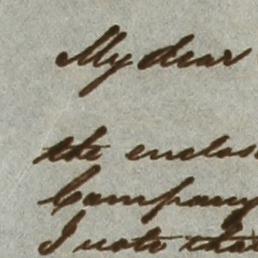 My dear
the enclos
Company
I note that